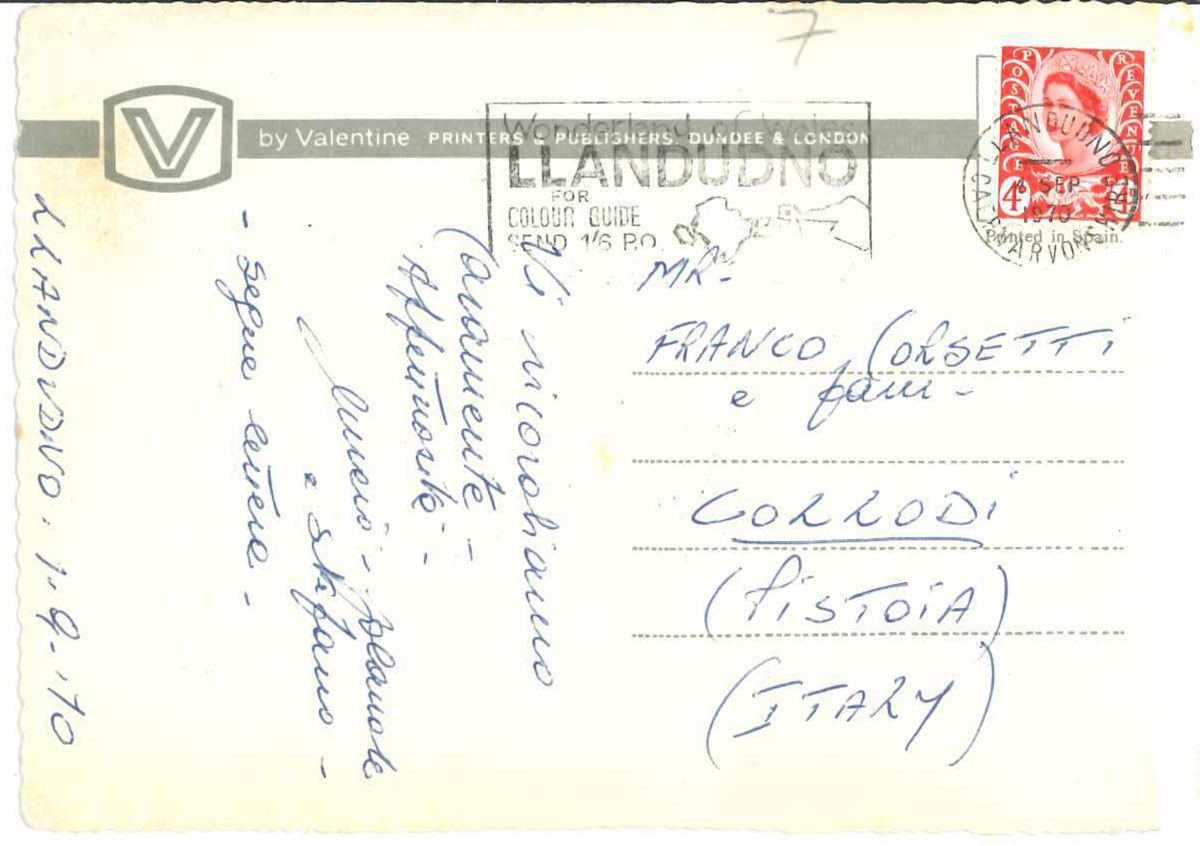 7
by Valentine PRINTERS & PUBLISHERS, DUNDEE & LONDON
Wonderland of Wales
LLANDUDNO
FOR
COLOUR GUIDE
SEND 1/6 P.O.
POSTAGE REVENUE
4D
LLANDUDNO
4 SEP
1970
CAERNARVONSHIRE
Printed in Spain.
LLANDUDNO. 1.9.'70
Vi ricordiamo
Caramente -
Affettuosità -
e Stefano -
- Segue lettera -
MR-
FRANCO CORSETTI
e fam-
CORRODI
(PISTOIA)
(ITALY)